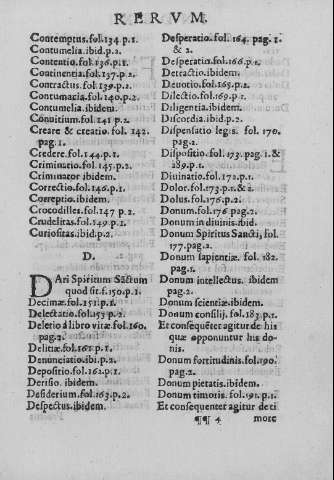 RERVM.
Contemptus.fol.134.p.1.
Contumelia.ibid.p.2.
Contentio.fol.136.p.1.
Continentia.fol.137.p.2.
Contractus.fol.139.p.2.
Contumacia.fol.140.p.2.
Contumelia.ibidem.
Conuitium.fol.141 p.2.
Creare & creatio.fol. 142.
pag.1.
Credere.fol.144.p.1.
Criminatio.fol.145.p.2.
Criminator ibidem.
Correctio.fol.146.p.1.
Correptio.ibidem.
Crocodilles.fol.147 p.2.
Crudelitas.fol.149.p.1.
Curiositas.ibid.p.2.
D.
DAri Spiritum Sāctum
quod sit.f.150.p.1.
Decimæ.fol.151.p.1.
Delectatio.fol.153.p.2.
Deletio á libro vitæ fol.160.
pag.2.
Delitiæ.fol.161.p.1.
Denunciatio.ibi.p.2.
Depositio.fol.162.p.1.
Derisio.ibidem.
Desiderium.fol.163.p.2.
Despectus.ibidem.
Desperatio.fol. 164. pag.1.
& 2.
Desperatio.fol.166.p.1.
Detractio.ibidem.
Deuotio.fol.165.p.2.
Dilectio.fol.169.p.1.
Diligentia.ibidem.
Discordia.ibid.p.2.
Dispensatio legis. fol. 170.
pag.2.
Dispositio.fol.173.pag.1.&
289.p.1.
Diuinatio.fol.172.p.1.
Dolor.fol.173.p.1.& 2.
Dolus.fol.176.p.2.
Donum.fol.176 pag.2.
Donum indiuinis.ibid.
Donum Spiritus Sancti, fol.
177.pag.2.
Donum sapientiæ. fol. 182.
pag.1.
Donum intellectus. ibidem
pag.2.
Donum scientiæ.ibidem.
Donum consilij.fol.183.p.1.
Et consequēter agitur de his
quæ opponuntur his do-
nis.
Donum fortitudinis.fol.190.
pag.2.
Donum pietatis.ibidem.
Donum timoris.fol.191.p.1.
Et consequenter agitur de ti
¶¶ 4 more